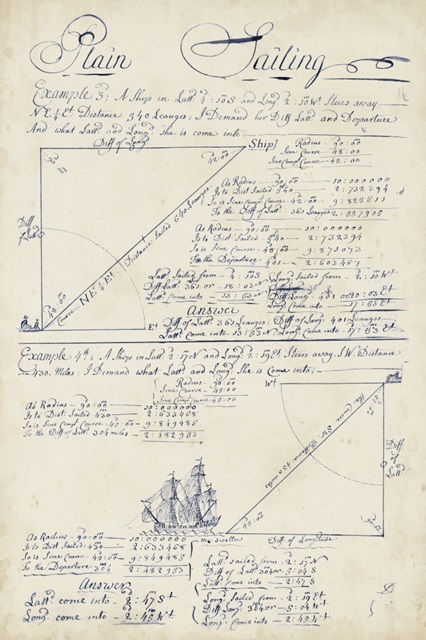 Plain Sailing
Example 3: A Ship in Latt 4:10S and Long 2:10Wt Steers away
NE ¼ Et Distance 540 Leauges, I Demand her Diff Latt and Departure
And what Latt and Long She is come into
Diff of Long
Ship
Radius 90:00
Sine Course 48:00
Sine Comp Course 42:00
Diff of Latt
Course 48:00 NE ¼ Et Distance Sailed 540 Leauges
42:00
Et
As Radius 90:00 10:000000
Is to Dist Sailed 540 2:732394
So is Sine Comp Course 42:00 9:825511
To the Diff of Latt 361 Leauges 2:557905
As Radius 90:00 10:000000
Is to Dist Sailed 540 2:732394
So is Sine Course 48:00 9:871073
To the Departure 401 2:603467
Latt Sailed from 4:10S
Diff Latt 361 or 18:03
Latt Come into 13:53
Long Sailed from 2:10Wt
Diff Long 401 or 20:03 Et
Long Come into 17:53 Et
Answer
Diff of Latt 361 Leauges Diff of Long 401 Leauges
Latt Come into 13:53 Long Come into 17:53 Et
Example 4th: A Ship in Latt 2:17N and Long 2:19Et Steers away SW Distance
430 Miles: I Demand what Latt and Long She is Come into:
Radius 90:00
Sine Course
Sine Comp Course
Wt
As Radius 90:00 10:000000
Is to Dist Sailed 430 2:633468
So is Sine Comp Course 9:849485
To the Diff of Latt 304 miles 2:482953
Distance 430 miles
Diff of Latt
the Swallow
Diff of Longitude
As Radius 90:00 10:000000
Is to Dist Sailed 430 2:633468
So is Sine Course 9:849485
To the Departure 304 2:482953
Answer
Latt come into 2:47S
Long come into 2:45Wt
Latt Sailed from 2:17N
Diff of Latt 304 or 5:04S
Latt Come into 2:47S
Long Sailed from 2:19Et
Diff Long 304 or 5:04Wt
Long Come into 2:45Wt